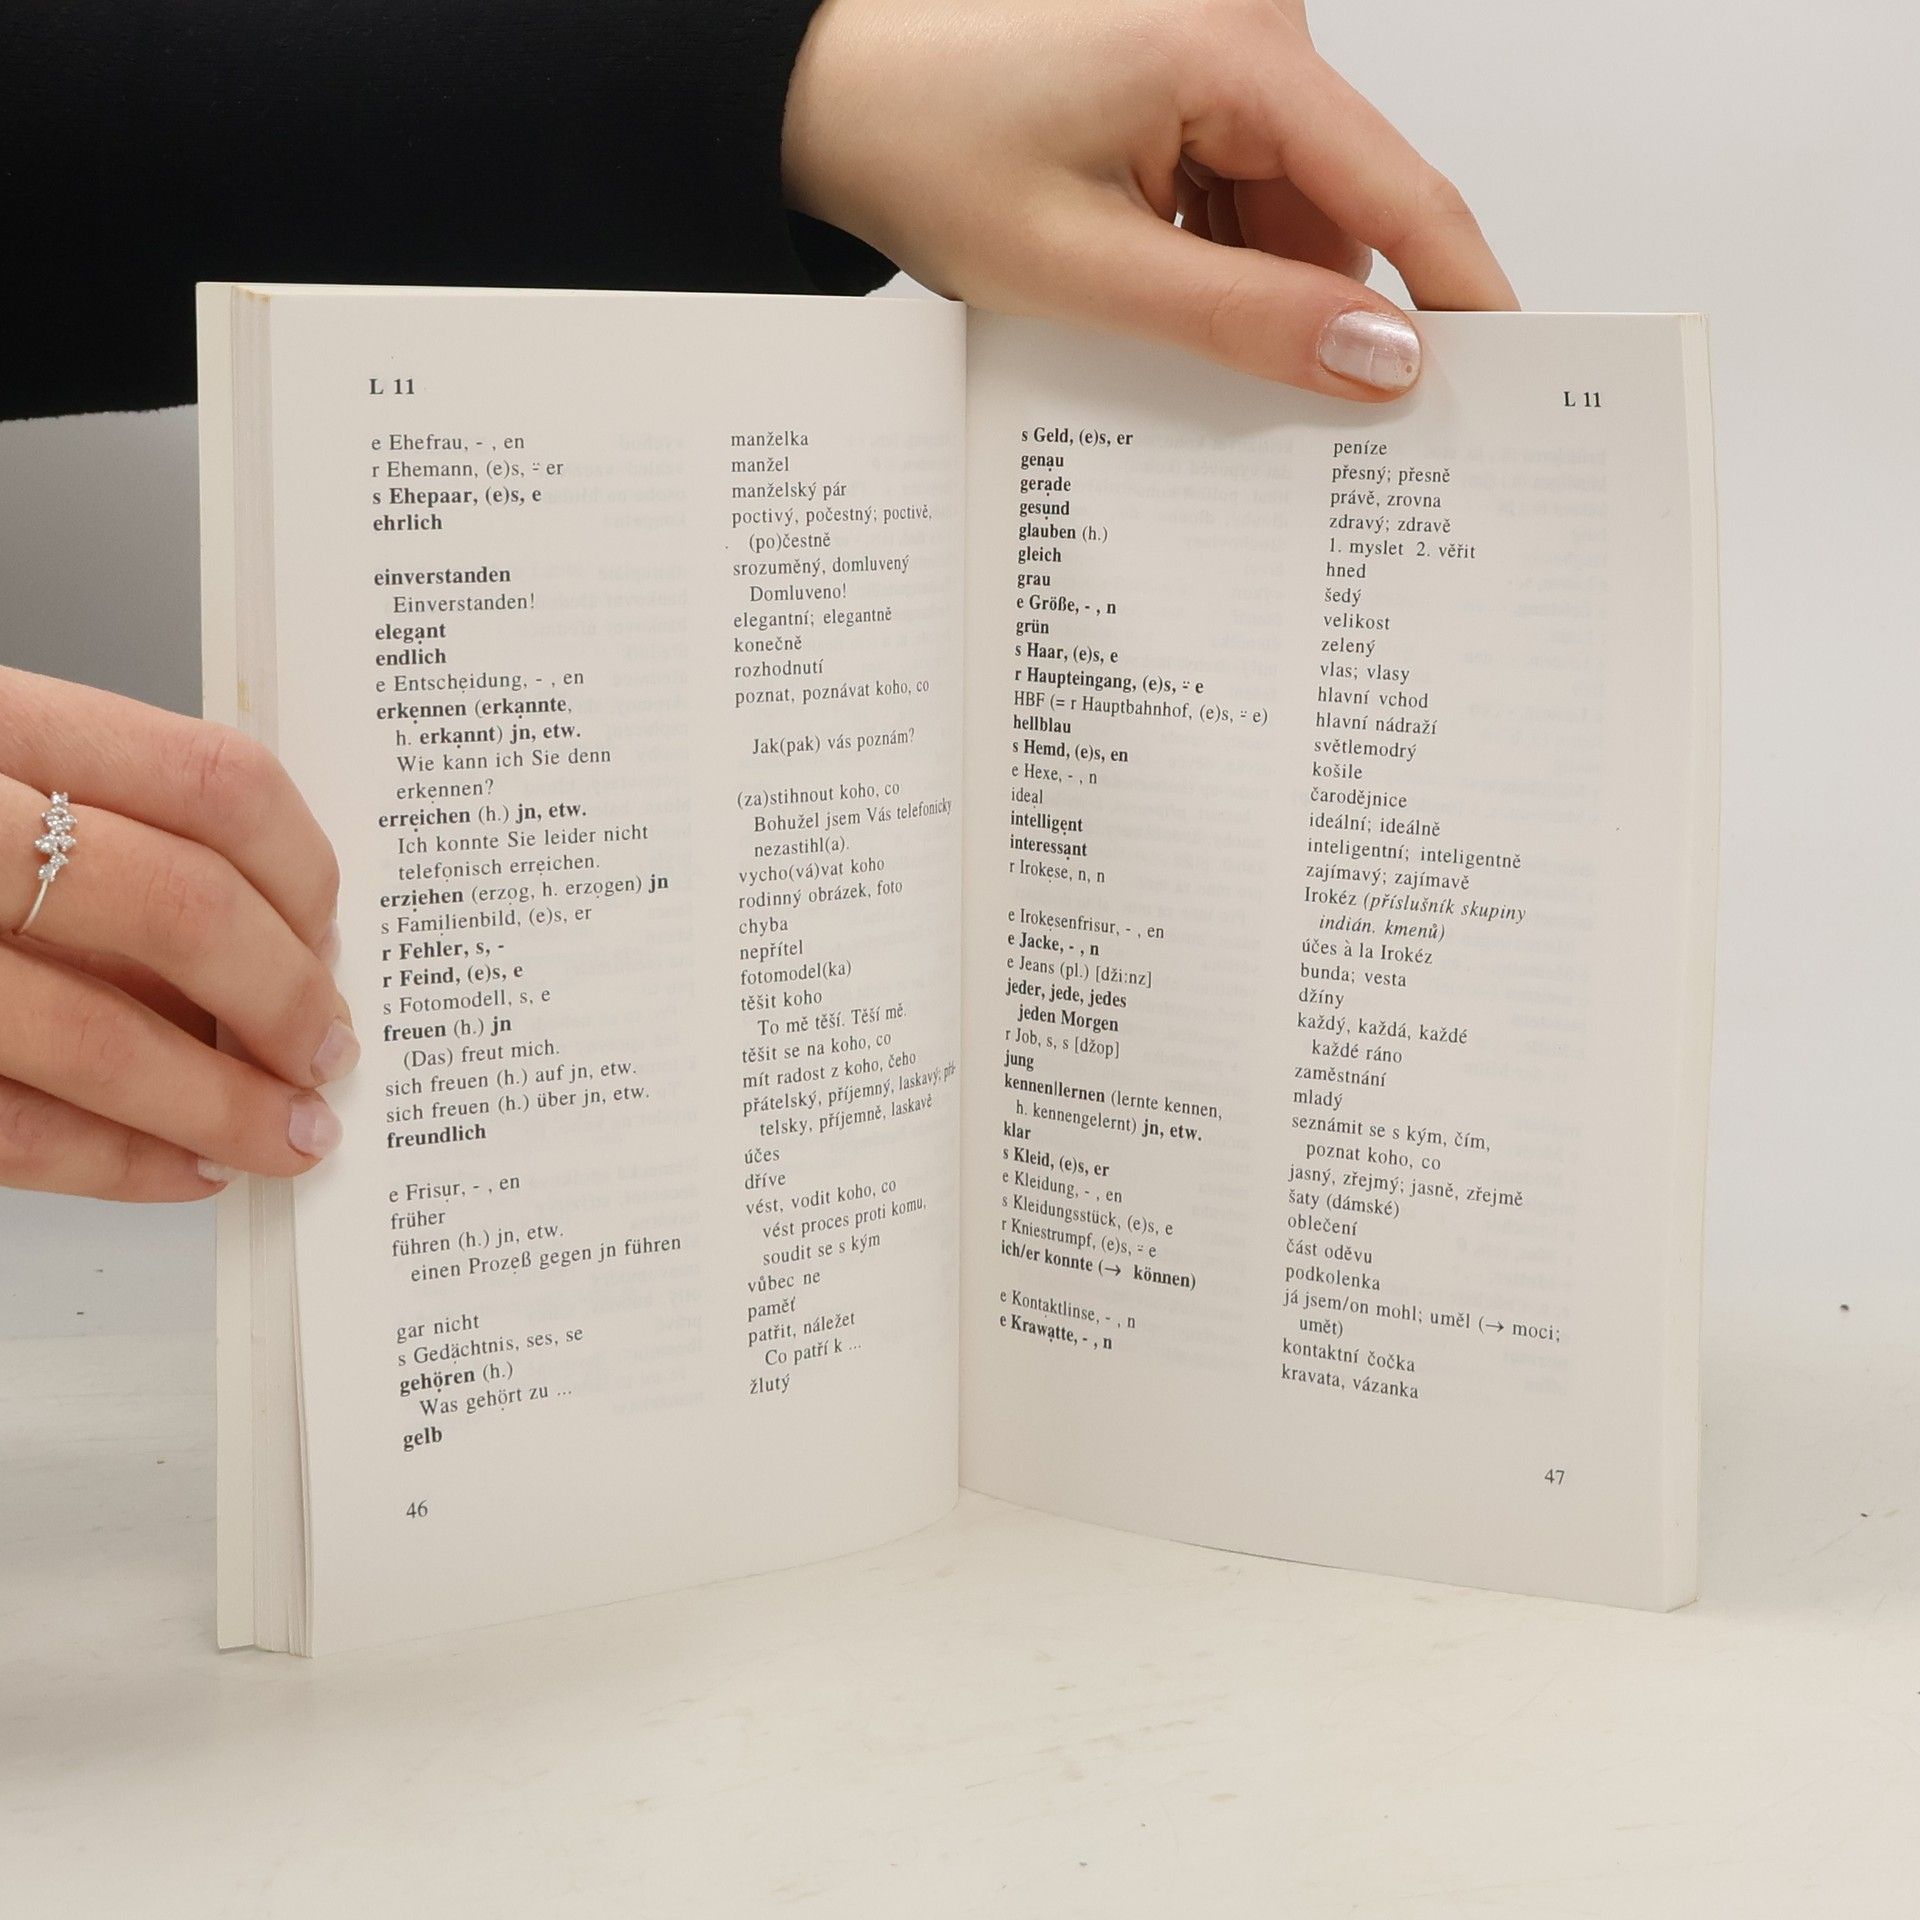 L 11
e Ehefrau, - , en
r Ehemann, (e)s, ⸚ er
s Ehepaar, (e)s, e
ehrlich
einverstanden
Einverstanden!
elegạnt
endlich
e Entschẹidung, - , en
erkẹnnen (erkạnnte,
h. erkạnnt) jn, etw.
Wie kann ich Sie denn
erkẹnnen?
errẹichen (h.) jn, etw.
Ich konnte Sie leider nicht
telefọnisch errẹichen.
erzịehen (erzọg, h. erzọgen) jn
s Famịlienbild, (e)s, er
r Fehler, s, -
r Feind, (e)s, e
s Fotomodell, s, e
freuen (h.) jn
(Das) freut mich.
sich freuen (h.) auf jn, etw.
sich freuen (h.) über jn, etw.
freundlich
e Frisụr, - , en
früher
führen (h.) jn, etw.
einen Prozẹß gegen jn führen
gar nicht
s Gedạ̈chtnis, ses, se
gehọ̈ren (h.)
Was gehọ̈rt zu ...
gelb
46
manželka
manžel
manželský pár
poctivý, počestný; poctivě,
(po)čestně
srozuměný, domluvený
Domluveno!
elegantní; elegantně
konečně
rozhodnutí
poznat, poznávat koho, co
Jak(pak) vás poznám?
(za)stihnout koho, co
Bohužel jsem Vás telefonicky
nezastihl(a).
vycho(vá)vat koho
rodinný obrázek, foto
chyba
nepřítel
fotomodel(ka)
těšit koho
To mě těší. Těší mě.
těšit se na koho, co
mít radost z koho, čeho
přátelský, příjemný, laskavý; přá-
telsky, příjemně, laskavě
účes
dříve
vést, vodit koho, co
vést proces proti komu,
soudit se s kým
vůbec ne
paměť
patřit, náležet
Co patří k ...
žlutý
L 11
s Geld, (e)s, er
genạu
gerạde
gesụnd
glauben (h.)
gleich
grau
e Größe, - , n
grün
s Haar, (e)s, e
r Haupteingang, (e)s, ⸚ e
HBF (= r Hauptbahnhof, (e)s, ⸚ e)
hellblau
s Hemd, (e)s, en
e Hexe, - , n
ideạl
intelligẹnt
interessạnt
r Irokẹse, n, n
e Irokẹsenfrisur, - , en
e Jacke, - , n
e Jeans (pl.) [dži:nz]
jeder, jede, jedes
jeden Morgen
r Job, s, s [džop]
jung
kennen|lernen (lernte kennen,
h. kennengelernt) jn, etw.
klar
s Kleid, (e)s, er
e Kleidung, - , en
s Kleidungsstück, (e)s, e
r Kniestrumpf, (e)s, ⸚ e
ich/er konnte (→ können)
e Kontaktlinse, - , n
e Krawạtte, - , n
peníze
přesný; přesně
právě, zrovna
zdravý; zdravě
1. myslet 2. věřit
hned
šedý
velikost
zelený
vlas; vlasy
hlavní vchod
hlavní nádraží
světlemodrý
košile
čarodějnice
ideální; ideálně
inteligentní; inteligentně
zajímavý; zajímavě
Irokéz (příslušník skupiny
indián. kmenů)
účes à la Irokéz
bunda; vesta
džíny
každý, každá, každé
každé ráno
zaměstnání
mladý
seznámit se s kým, čím,
poznat koho, co
jasný, zřejmý; jasně, zřejmě
šaty (dámské)
oblečení
část oděvu
podkolenka
já jsem/on mohl; uměl (→ moci;
umět)
kontaktní čočka
kravata, vázanka
47